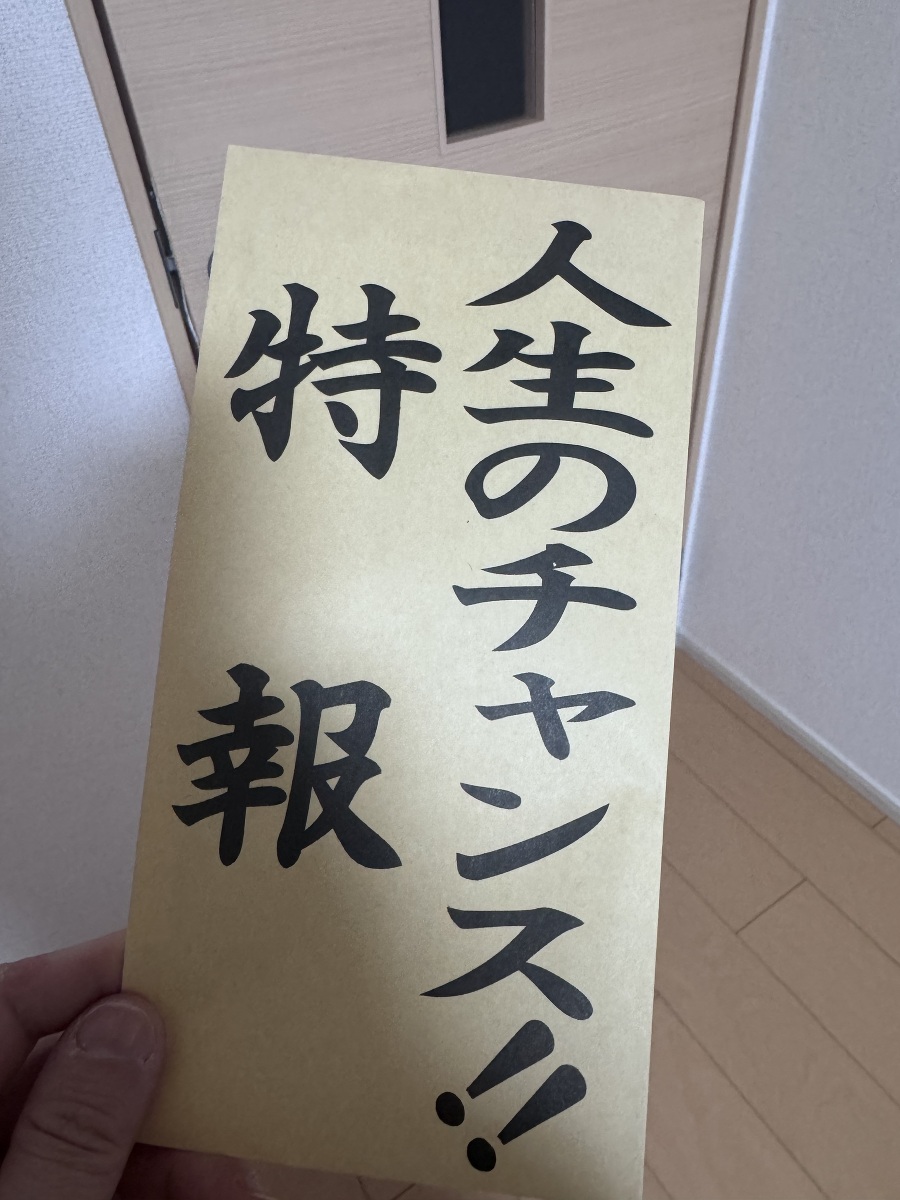 人生のチャンス!!
特報